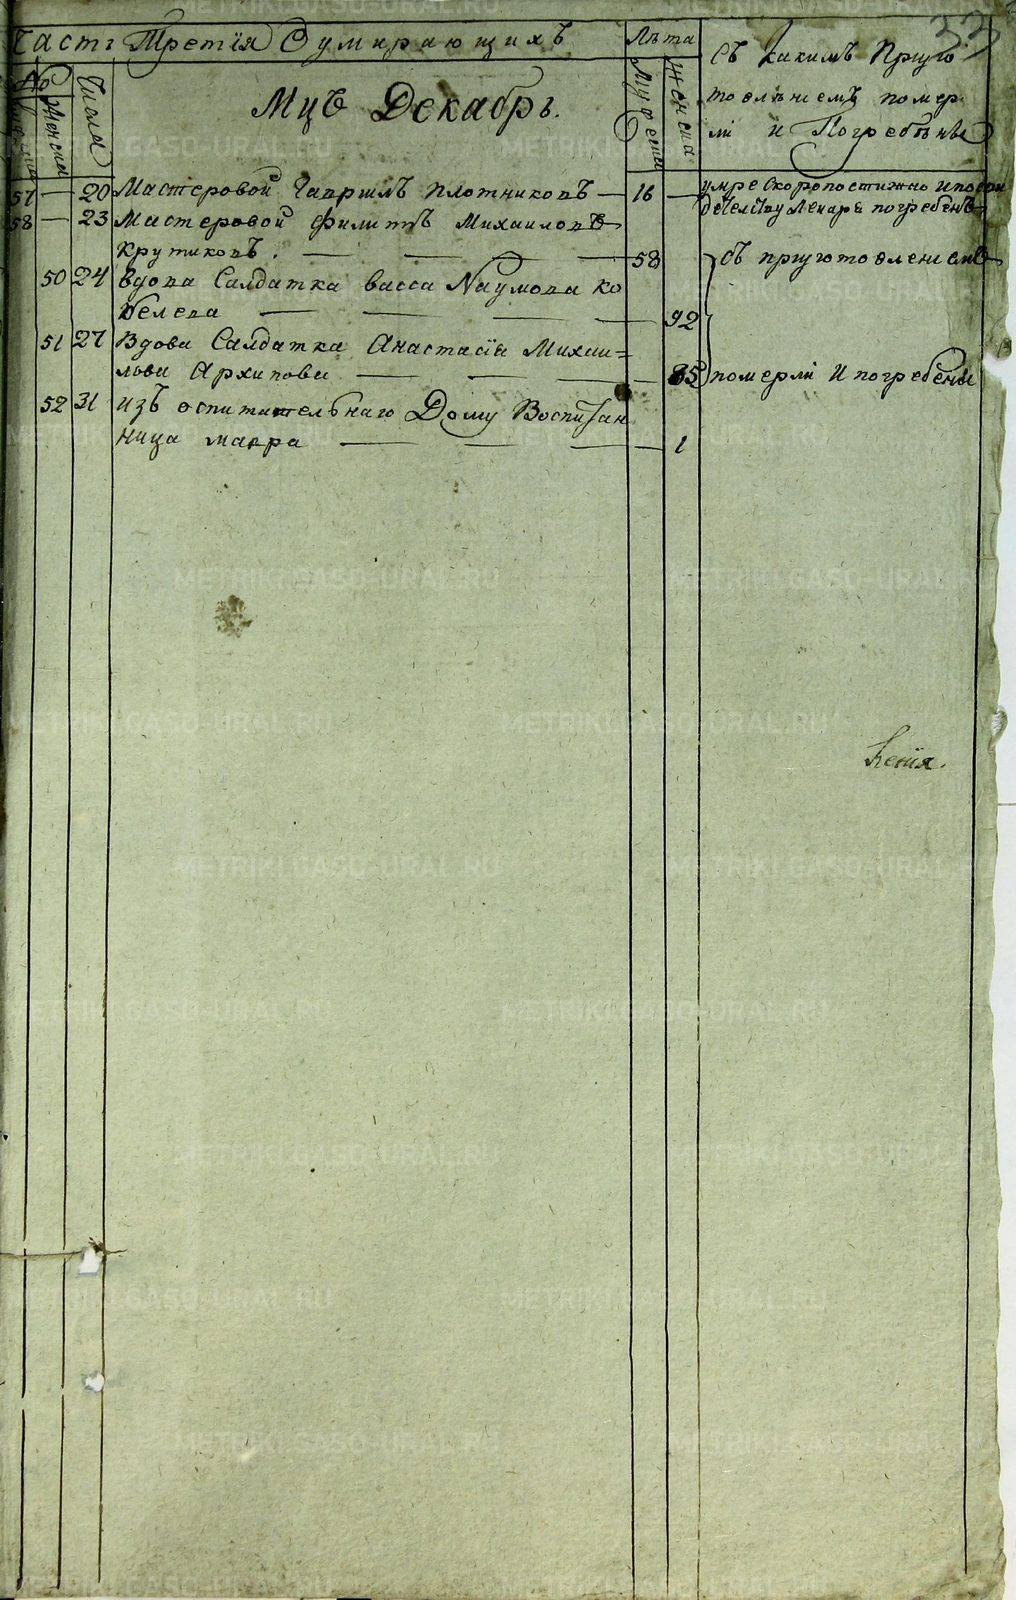 Часть Третїя Оумирающихъ
Лѣта
Съ Какимъ Приуго
товленіемъ помер
ли и Погребѣны
33
№
Мужеска
Женска
Числа
Мцъ Декабрь.
Мужеска
Женска
57 — 20 Мастеровой Гаврилъ плотниковъ — 16 — умре Скоропостижно и по сви
детелству Лекаря погребенъ
58 — 23 Мастеровой Филипъ Михаиловъ
Крутиковъ. — — — — 58 съ приуготовлениемъ
50 24 вдова Салдатка васса Наумова Ко
белева — — — — 92
51 27 Вдова Салдатка Анастасїя Михаи=
лова Архипова — — — — 85 померли И погребены
52 31 изъ оспитательнаго Дому Воспитан
ница мавра — — — 1
кенїя.
METRIKI.GASO-URAL.RU